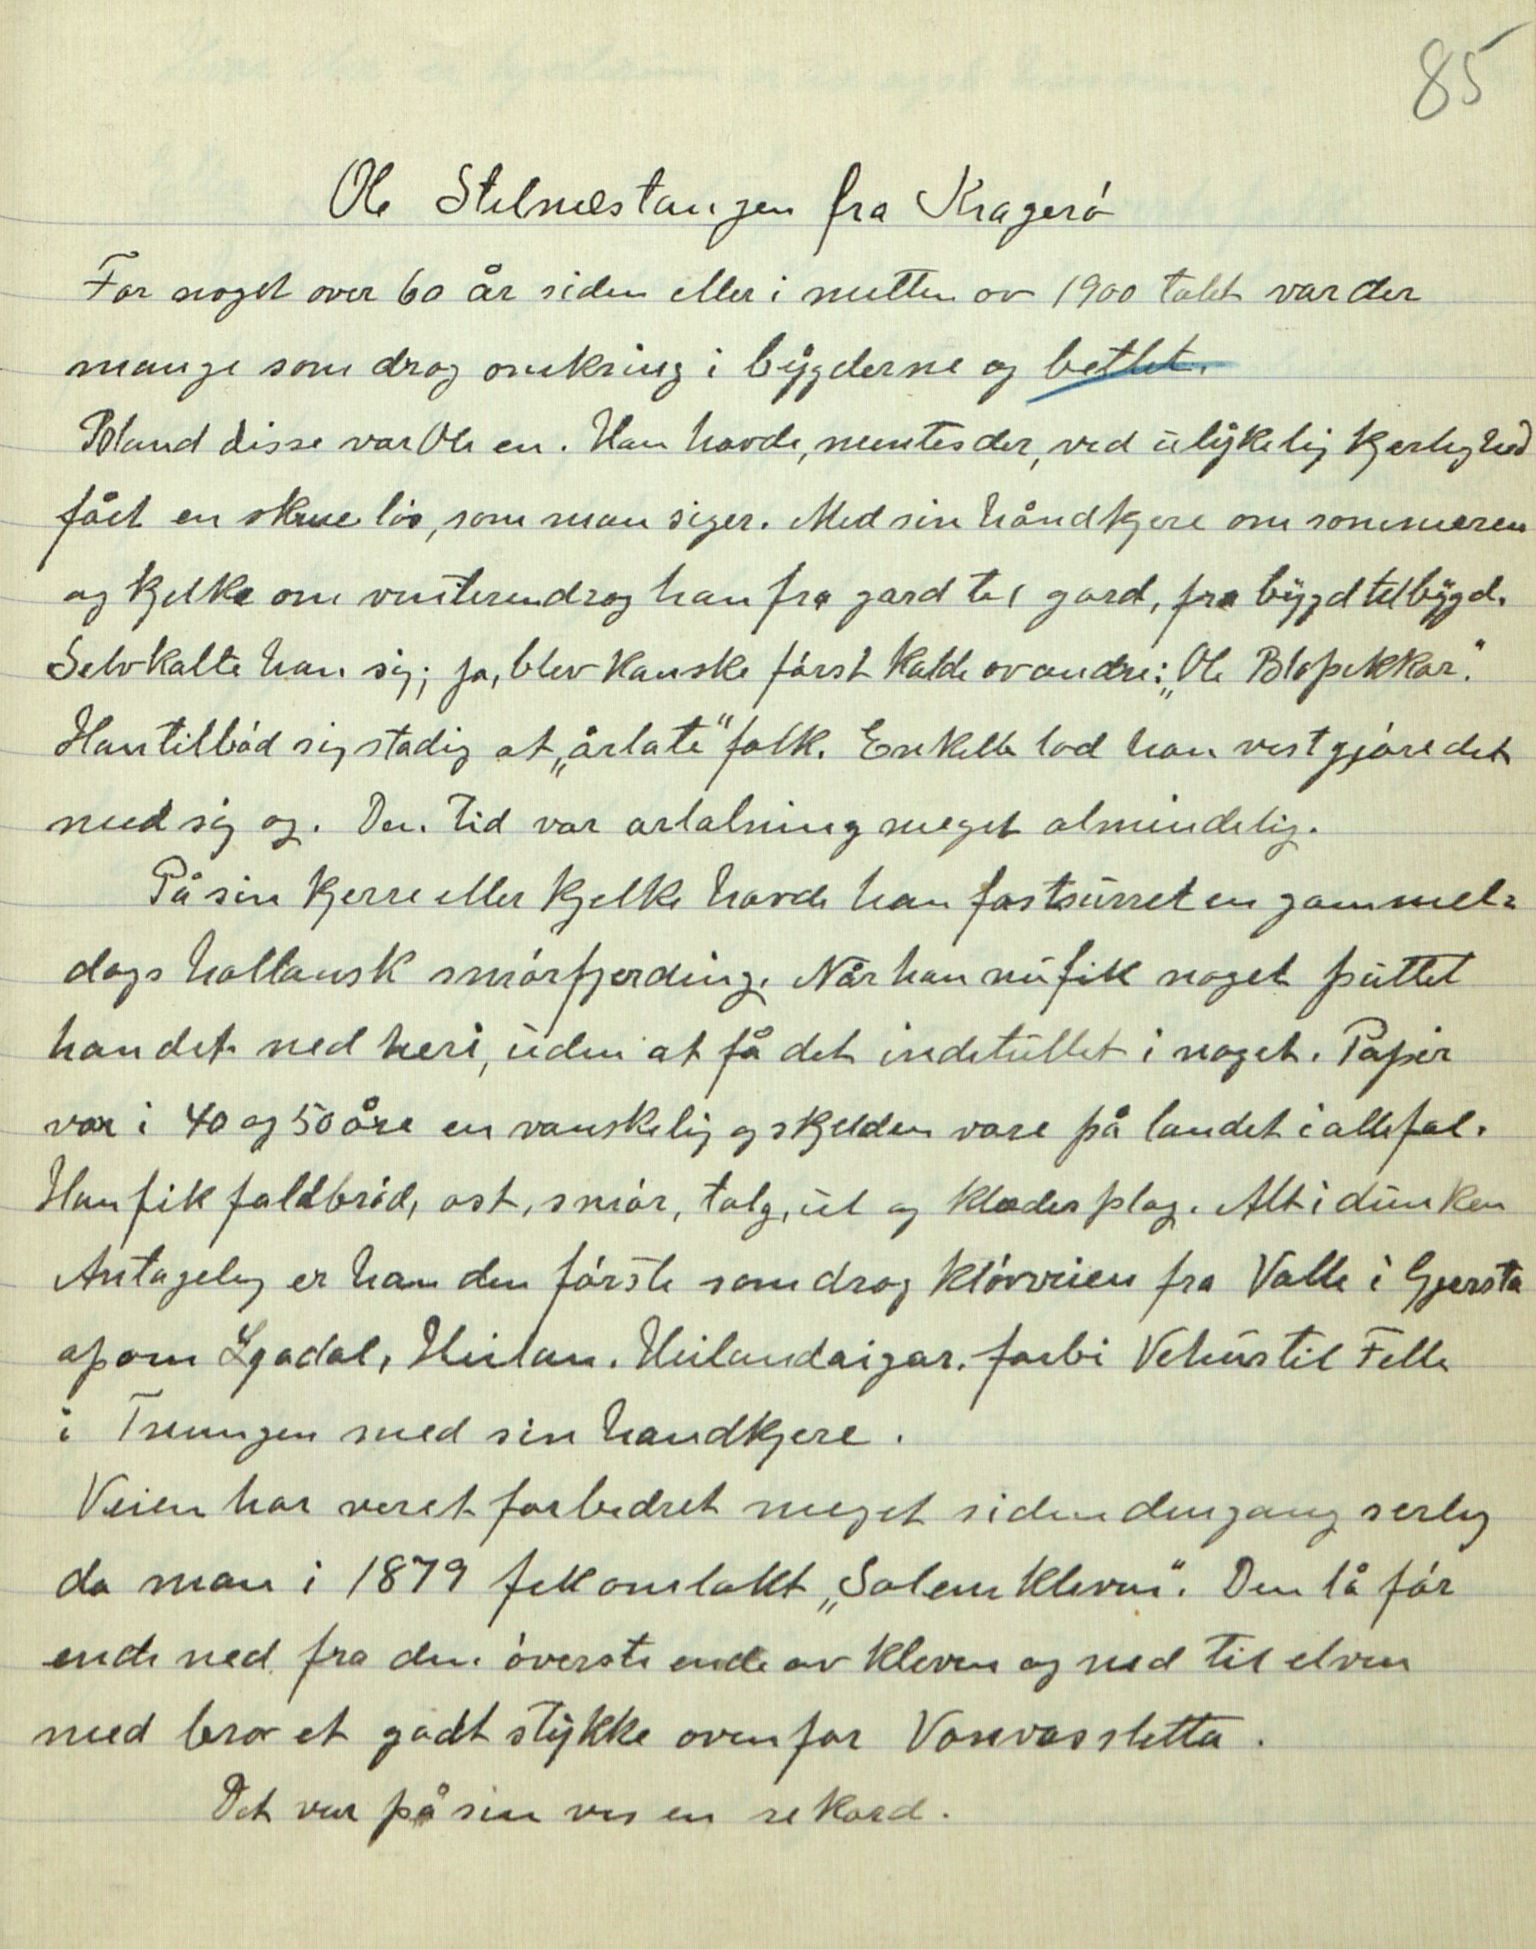 85
Ole Stilnæstangen fra Kragerö
For noget over 60 år siden eller i mitten av 1900 talet var der
mange som drog omkring i bygderne og betlet.
Bland disse var Ole en. Han havde, mentes der, ved ulykelig kjerlighed
fået en skrue lös, som man siger. Med sin håndkjere om sommeren
og kjelke om vinteren drog han fra gard til gard, fra bygd til bygd.
Selv kalte han sig; ja, blev kanske först kaldt av andre: „Ole Blopikkar."
Han tilböd sig stadig at „årlate" folk. Enkelte lod han vist gjöre det
med sig og. Den tid var arlatning meget almindelig.
På sin kjerre eller kjelke havde han fastsurret en gammel-
dags hollansk smörfjerding. Når han nu fik noget puttet
han det ned heri, uden at få det indtullet i noget. Papir
var i 40 og 50 åre en vanskelig og skjelden vare på landet i allefal.
Han fik faldbröd, ost, smör, talg, ul og klædesplag. Alt i dunken
Antagelig er han den förste som drog klövveien fra Valle i Gjersta
opom Lgadal, Heilan. Heilandsigar. forbi Vehus til Felle
i Treungen med sin handkjere.
Veien har veret forbedret meget siden dengang serlig
da man i 1879 fek omlakt „Solemkleven". Den lå för
ende ned fra den överste ende av kleven og ned til elven
med bro et godt stykke ovenfor Vonvassletta.
Det var på sin vis en rekord.